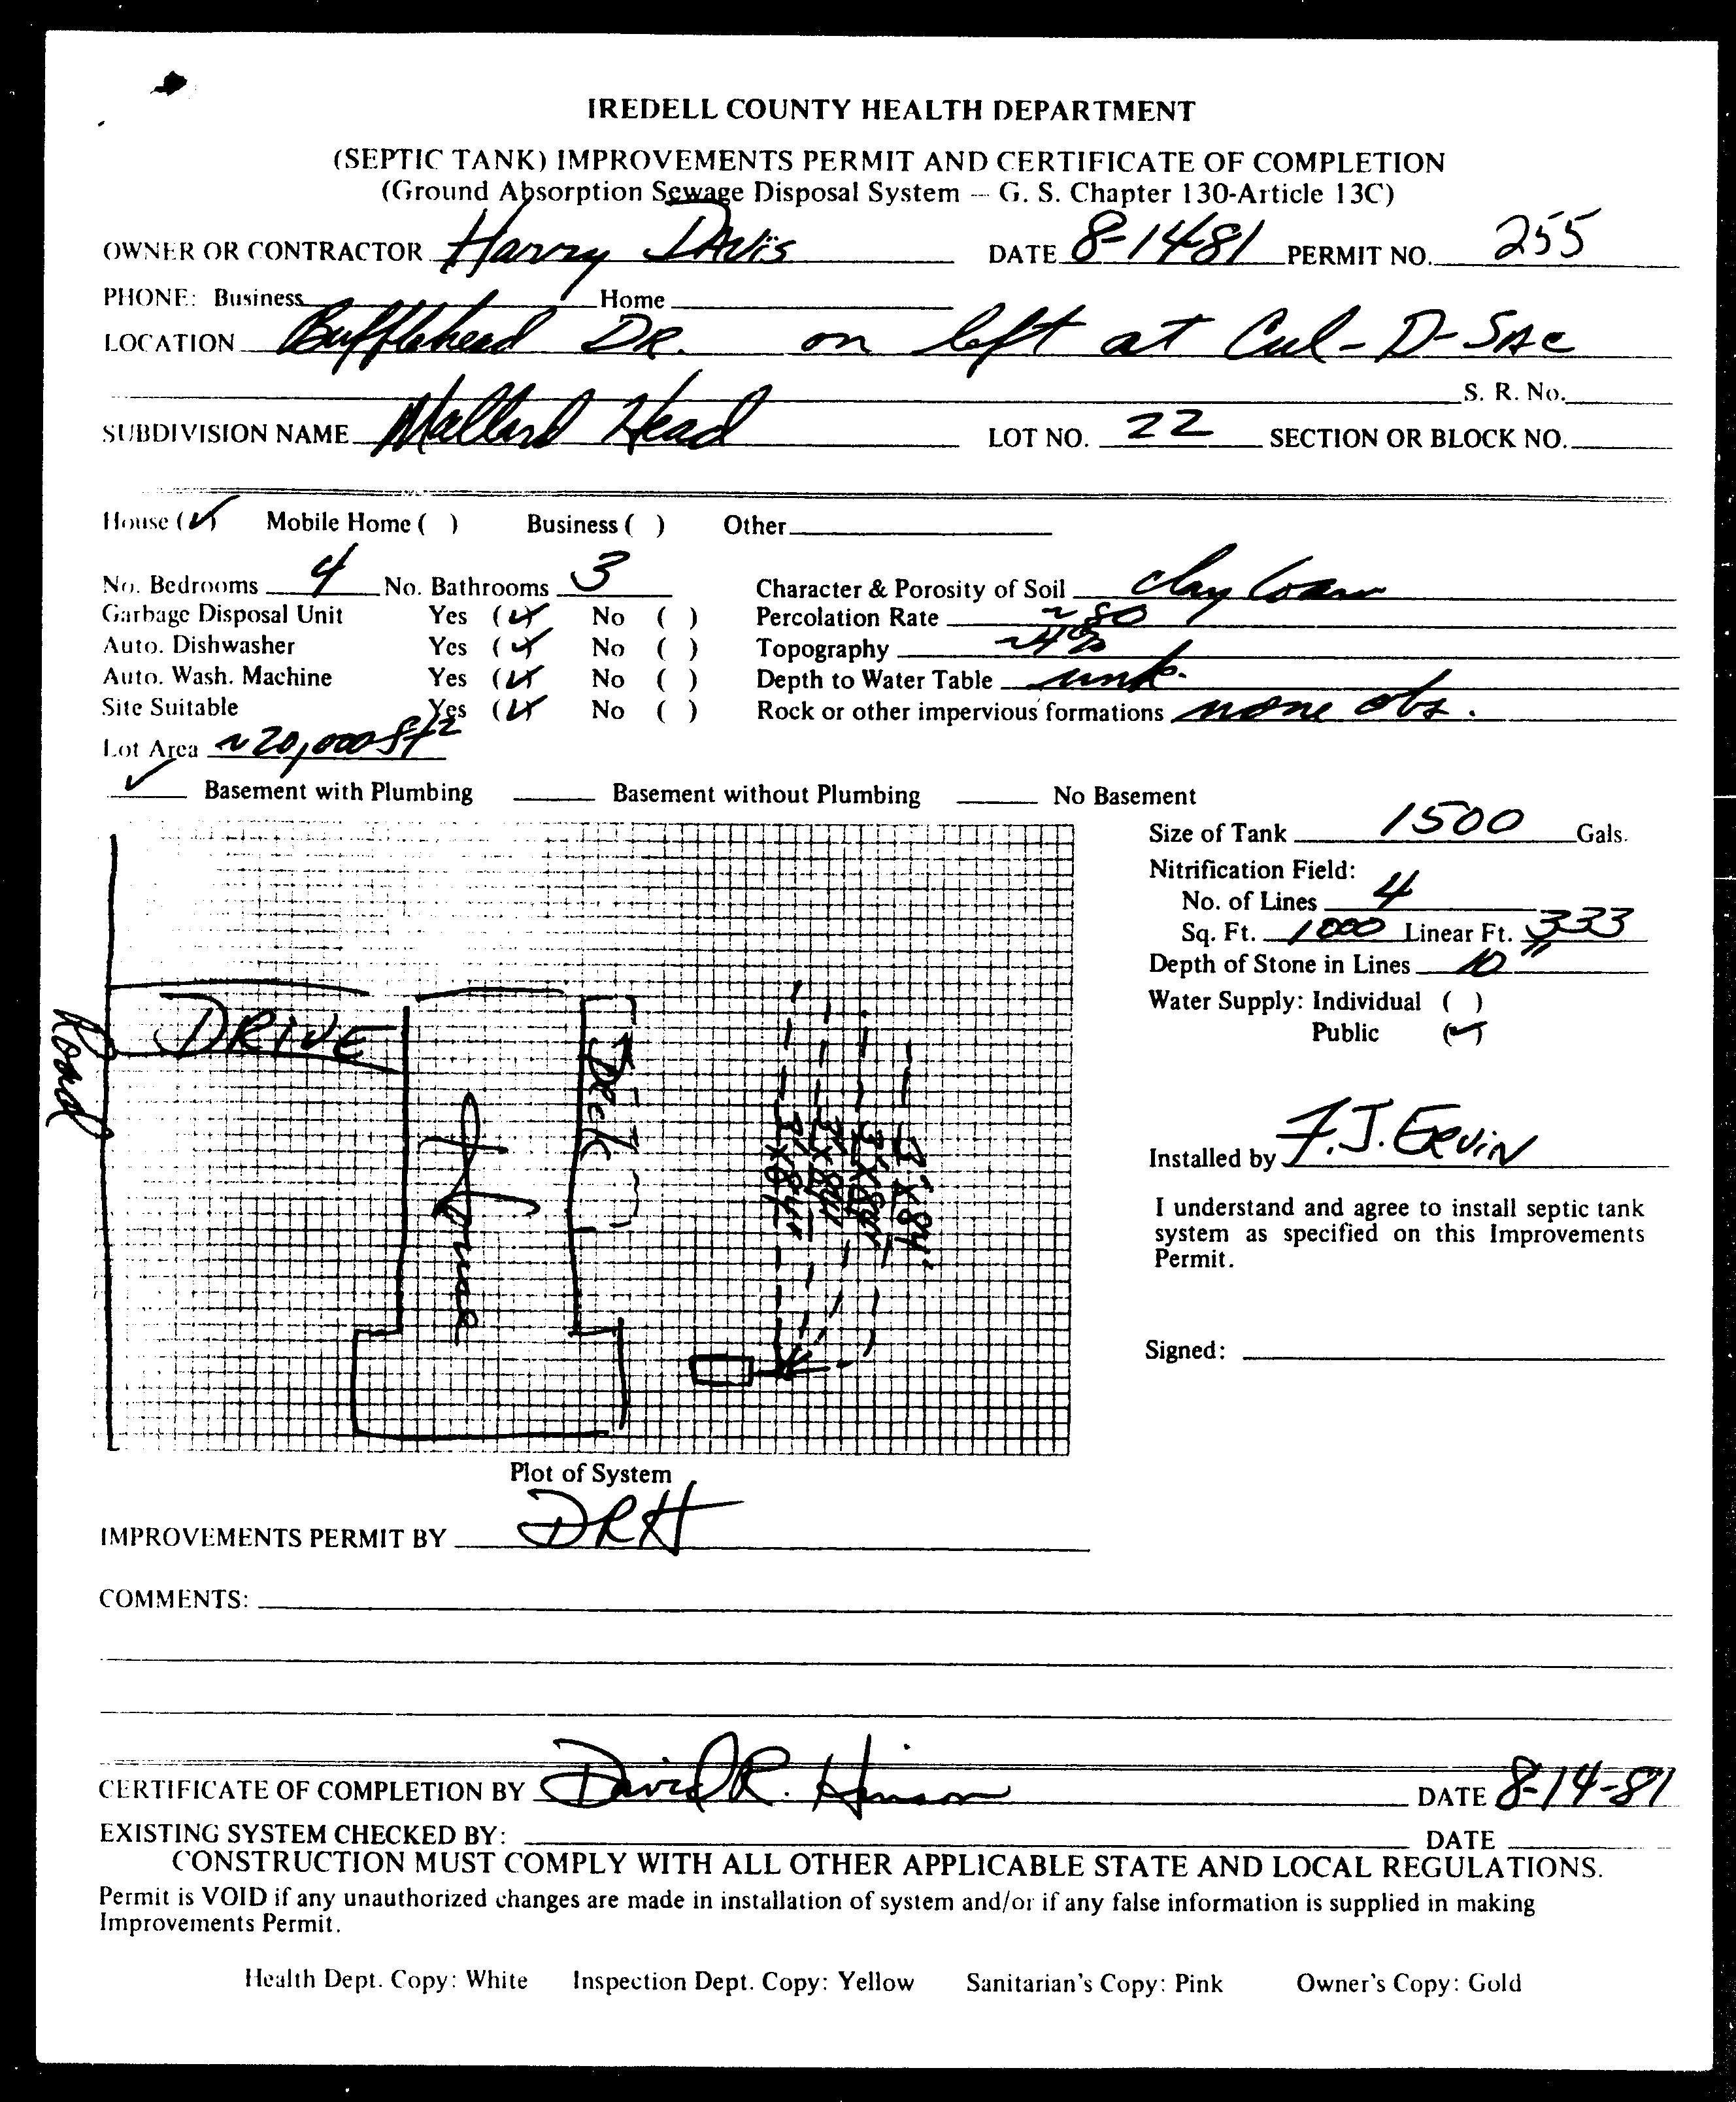 IREDELL COUNTY HEALTH DEPARTMENT
(SEPTIC TANK) IMPROVEMENTS PERMIT AND CERTIFICATE OF COMPLETION
(Ground Absorption Sewage Disposal System — G. S. Chapter 130-Article 13C)
OWNER OR CONTRACTOR Harry Davis DATE 8-14-81 PERMIT NO. 255
PHONE: Business Home
LOCATION Bufflehead DR. on left at Cul-D-Sac
S. R. No.
SUBDIVISION NAME Mallard Head LOT NO. 22 SECTION OR BLOCK NO.
House (✓) Mobile Home ( ) Business ( ) Other
No. Bedrooms 4 No. Bathrooms 3 Character & Porosity of Soil clay loam
Garbage Disposal Unit Yes (✓) No ( ) Percolation Rate ~80
Auto. Dishwasher Yes (✓) No ( ) Topography ~4%
Auto. Wash. Machine Yes (✓) No ( ) Depth to Water Table unk.
Site Suitable Yes (✓) No ( ) Rock or other impervious formations none obs.
Lot Area ~20,000 ft2
✓ Basement with Plumbing Basement without Plumbing No Basement
Size of Tank 1500 Gals.
Nitrification Field:
No. of Lines 4
Sq. Ft. 1000 Linear Ft. 333
Depth of Stone in Lines 10"
Water Supply: Individual ( )
Public (✓)
Road
DRIVE
Deck
3'x84'
3'x84'
3'x84'
3'x84'
Installed by F.J. Ervin
I understand and agree to install septic tank
system as specified on this Improvements
Permit.
Signed:
Plot of System
IMPROVEMENTS PERMIT BY DRH
COMMENTS:
CERTIFICATE OF COMPLETION BY David R. Hinson DATE 8-14-81
EXISTING SYSTEM CHECKED BY: DATE
CONSTRUCTION MUST COMPLY WITH ALL OTHER APPLICABLE STATE AND LOCAL REGULATIONS.
Permit is VOID if any unauthorized changes are made in installation of system and/or if any false information is supplied in making
Improvements Permit.
Health Dept. Copy: White Inspection Dept. Copy: Yellow Sanitarian's Copy: Pink Owner's Copy: Gold